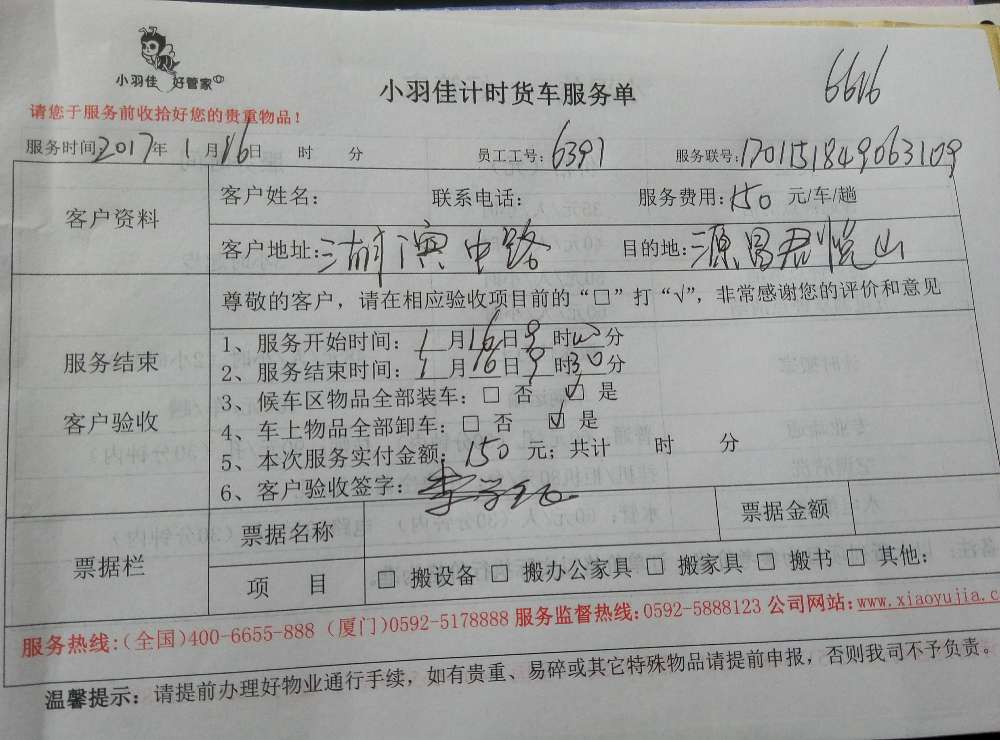 小羽佳 好管家
小羽佳计时货车服务单
6616
请您于服务前收拾好您的贵重物品！
服务时间：2017年1月16日 时 分 员工工号：6397 服务联号：1701151849063109
客户资料
客户姓名： 联系电话： 服务费用：150元/车/趟
客户地址：湖滨中路 目的地：源昌君悦山
服务结束
客户验收
尊敬的客户，请在相应验收项目前的“□”打“√”，非常感谢您的评价和意见
1、服务开始时间：1月16日9时00分
2、服务结束时间：1月16日9时30分
3、候车区物品全部装车：□ 否 ☑ 是
4、车上物品全部卸车：□ 否 ☑ 是
5、本次服务实付金额：150元；共计 时 分
6、客户验收签字：
票据栏
票据名称 票据金额
项 目 □ 搬设备 □ 搬办公家具 □ 搬家具 □ 搬书 □ 其他：
服务热线：（全国）400-6655-888（厦门）0592-5178888 服务监督热线：0592-5888123 公司网站：www.xiaoyujia.c
温馨提示：请提前办理好物业通行手续，如有贵重、易碎或其它特殊物品请提前申报，否则我司不予负责。